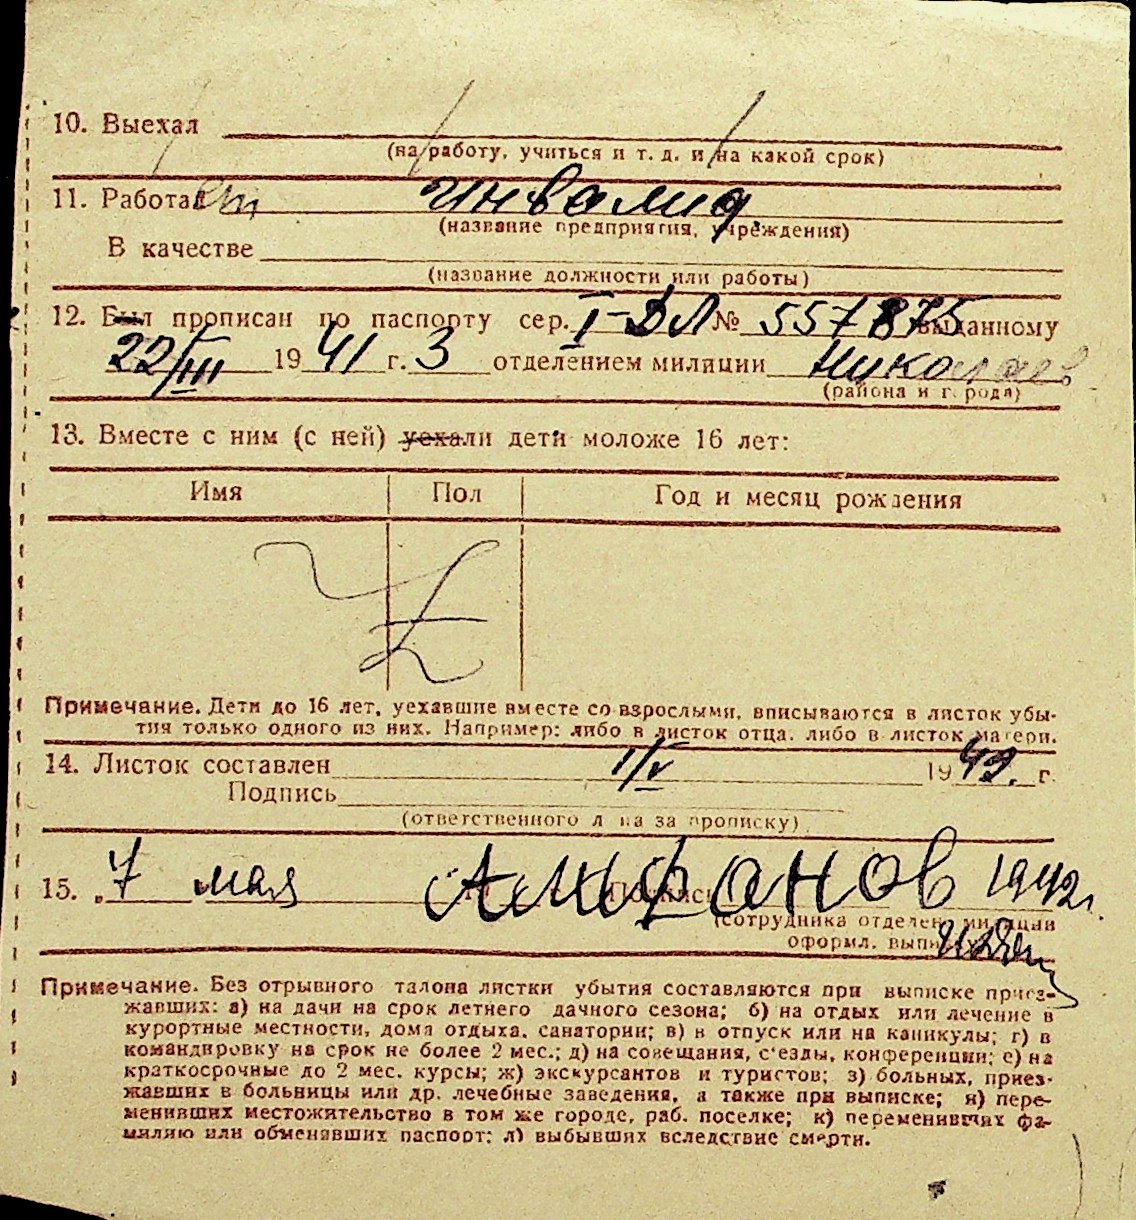 10. Выехал
(на работу, учиться и т. д. и на какой срок)
11. Работает инвалид
(название предприятия, учреждения)
В качестве
(название должности или работы)
12. Был прописан по паспорту сер. I-ДЛ № 557875 выданному
22/III 1941 г. 3 отделением милиции Николаев
(района и города)
13. Вместе с ним (с ней) уехали дети моложе 16 лет:
Имя Пол Год и месяц рождения
Примечание. Дети до 16 лет, уехавшие вместе со взрослыми, вписываются в листок убы-
тия только одного из них. Например: либо в листок отца, либо в листок матери.
14. Листок составлен 1/V 1942. г.
Подпись
(ответственного лица за прописку)
15. „7 мая Подпись 1942г.
(сотрудника отделен. милиции
оформл. выписку)
Примечание. Без отрывного талона листки убытия составляются при выписке приез-
жавших: а) на дачи на срок летнего дачного сезона; б) на отдых или лечение в
курортные местности, дома отдыха, санатории; в) в отпуск или на каникулы; г) в
командировку на срок не более 2 мес.; д) на совещания, с'езды, конференции; е) на
краткосрочные до 2 мес. курсы; ж) экскурсантов и туристов; з) больных, приез-
жавших в больницы или др. лечебные заведения, а также при выписке; и) пере-
менивших местожительство в том же городе, раб. поселке; к) переменивших фа-
милию или обменявших паспорт; л) выбывших вследствие смерти.